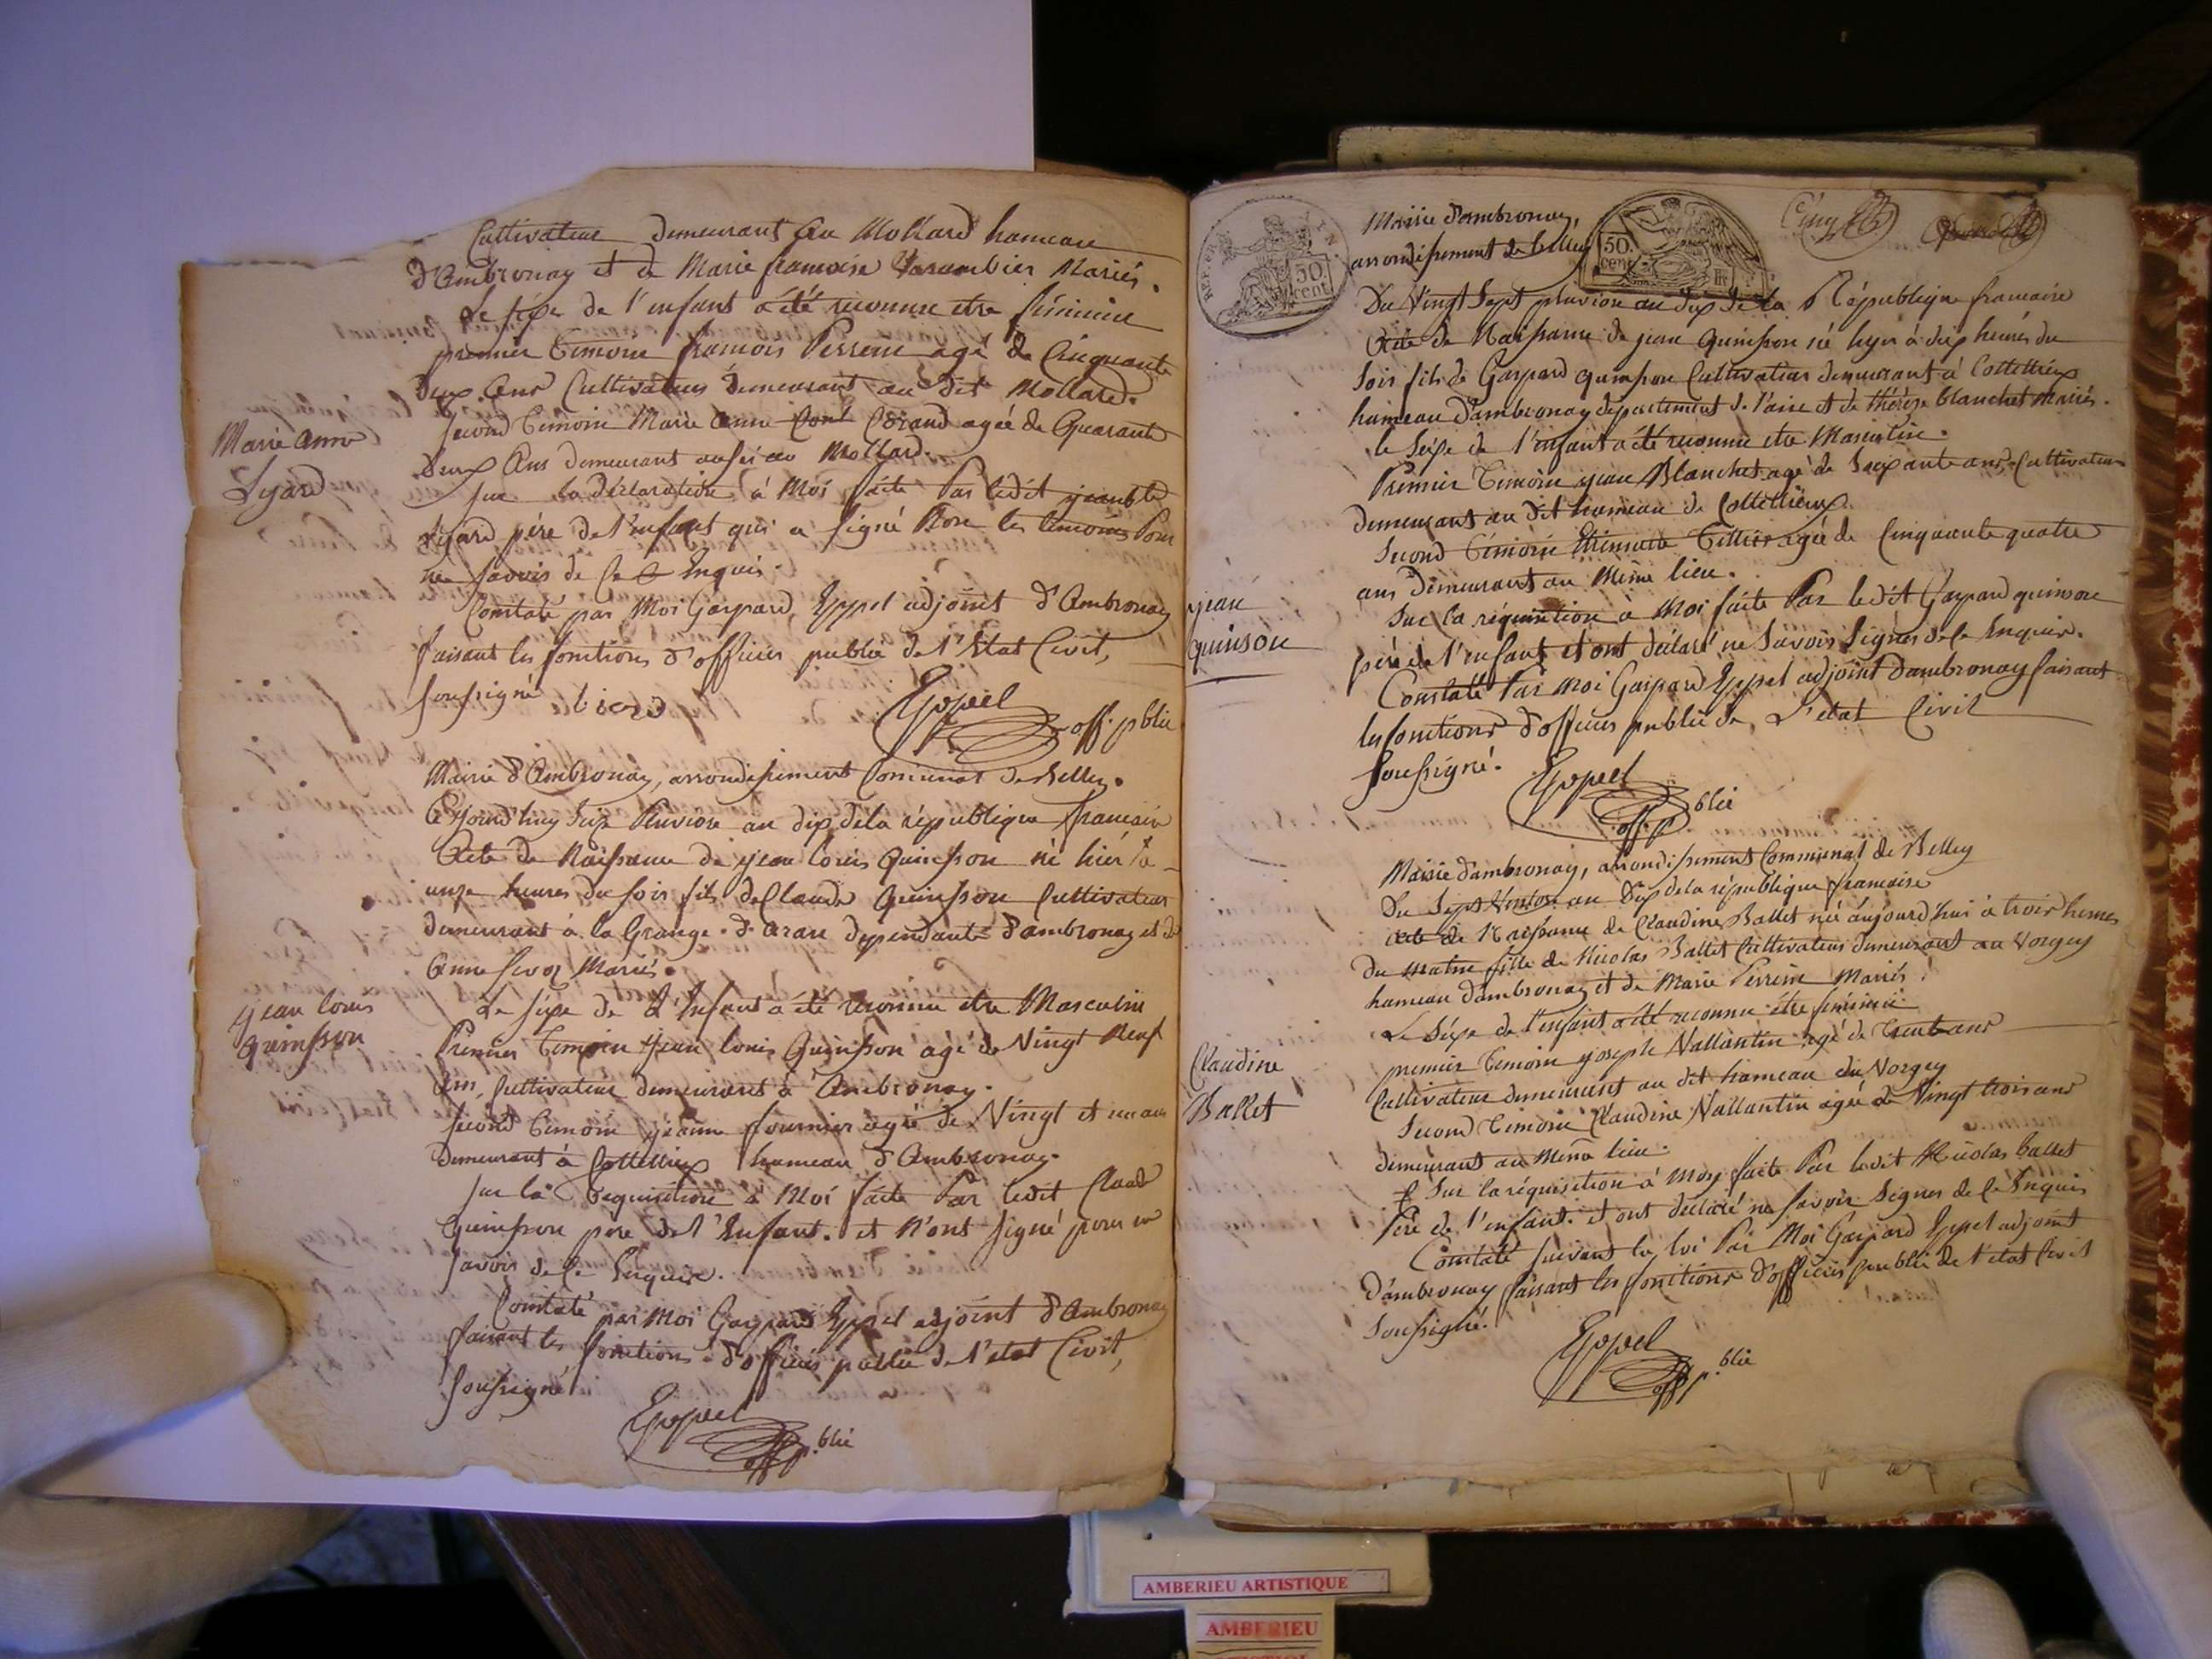 Cultivateur demeurant au Mollard hameau
d'Ambronay et de Marie francoise Varambier Mariés.
Le sexe de l'enfant a été reconnu etre féminin
premier Temoin francois Perrein agé de Cinquante
deux Ans Cultivateur demeurant au dit Mollard.
second Temoin Marie anne agée de Quarante
deux Ans demeurant aussi au Mollard.
Marie Anne
Lyard
sur la déclaration à Moi faite Par ledit
Lyard père de l'enfant qui a signé Non les temoins Pour
ne savoir de ce Enquis.
Constaté par Moi Gaspard Eppel adjoint d'Ambronay
faisant les fonctions d'officier public de l'Etat Civil,
soussigné liard
Eppel off. p blic
Mairie d'Ambronay, arrondissement Communal de Belley.
Cejourd'huy six Pluviose an dix de la république francaise
Acte de Naissance de jean louis Quinson né hier à
onze heures du soir fils de Claude Quinson Cultivateur
demeurant à la Grange dépendante d'ambronay et de
Anne Mariés.
jean louis
quinson
Le sexe de L'Enfant a été reconnu etre Masculin
Premier Temoin jean louis Quinson agé de Vingt Neuf
Ans, Cultivateur demeurant à Ambronay.
second Temoin jeanne fournier agée de Vingt et un ans
demeurant à Cottellieux hameau d'Ambronay.
sur la Requisition à Moi faite Par ledit Claude
Quinson père de l'Enfant. et N'ont signé pour ne
savoir de ce Enquis.
Constaté par Moi Gaspard Eppel adjoint d'Ambronay
faisant les fonctions d'officier public de l'etat Civil,
soussigné
Eppel
off p. blic
REP. FRA
50. cent
Mairie d'ambronay,
arrondissement de belley
50. cent
Du Vingt Sept pluviose an dix de la République francaise
Acte de Naissance de jean Quinson né hyer à dix heures du
soir fils de Gaspard quinson Cultivateur demeurant à Cottellieux
hameau d'ambronay département de l'ain et de thérèse blanchet mariés.
le Sexe de l'enfant a été reconnu etre Masculin.
Premier Temoin jean Blanchet agé de Soixante ans, Cultivateur
demeurant au dit hameau de Cottellieux.
Second Témoin agée de Cinquante quatre
ans demeurant au Même lieu.
jean
quinson
Sur la réquisition à Moi faite Par ledit Gaspard quinson
père de l'enfant et ont déclaré ne Savoir Signer de ce Enquis.
Constaté Par Moi Gaspard Eppel adjoint d'ambronay faisant
les fonctions d'officier public de L'etat Civil
soussigné.
Eppel
off. p blic
Mairie d'ambronay, arrondissement Communal de Belley
Du Sept Ventose an Dix de la république francaise
acte de Naissance de Claudine Ballet née aujourd'hui à trois heures
du matin fille de Nicolas Ballet Cultivateur demeurant au Vorgey
hameau d'ambronay et de Marie Perrein Mariés.
Le Séxe de l'enfant a été reconnu être feminin
Claudine
Ballet
premier Temoin joseph Vallantin agé de Trente ans
Cultivateur demeurant au dit hameau du Vorgey
Second Temoin Claudine Vallantin agée de Vingt trois ans
demeurant au Même lieu.
Sur la réquisition à Moy faite Par ledit Nicolas ballet
Père de l'enfant. et ont déclaré ne savoir Signer de Ce Enquis
Constaté suivant la loi Par Moi Gaspard Eppel adjoint
d'ambronay faisant les fonctions d'officier public de l'etat Civil
soussigné.
Eppel
off p. blic
AMBERIEU ARTISTIQUE
AMBERIEU